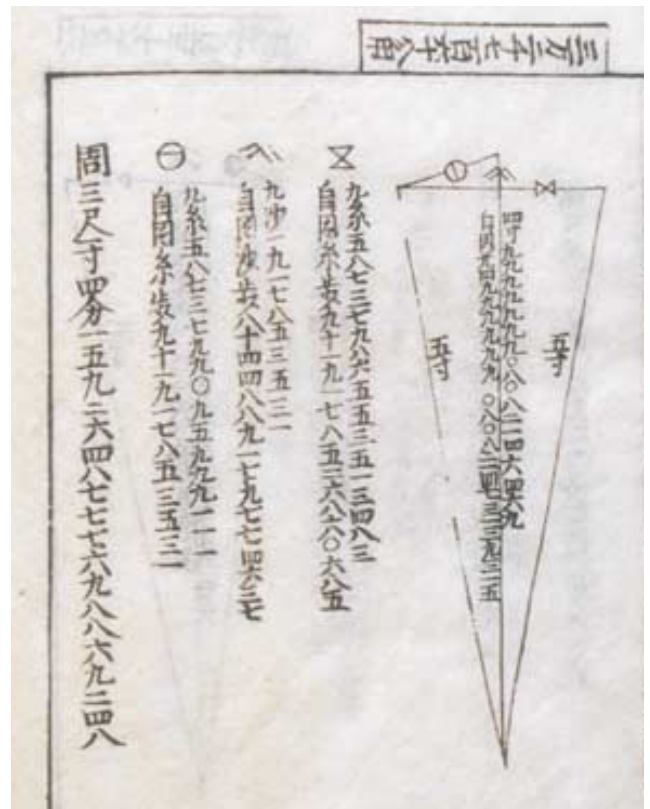 三万二千七百六十八角
四寸九九九九九九九〇八〇八二一四六四六九
自因廿四九九九九九九〇八〇八二一四七三一三九三一五
五寸
五寸
九糸五八七三七九八六五五三五一三四八三
自因糸歩九十一九一七八五二六八六〇六八五
九沙一九一七八五三五三一
自因沙歩八十四四八八九一七九七七四六三七
九糸五八七三七九九〇九五九九九二一一
自因糸歩九十一九一七八五三五三一
周三尺一寸四分一五九二六四八七七七六九八八六九二四八